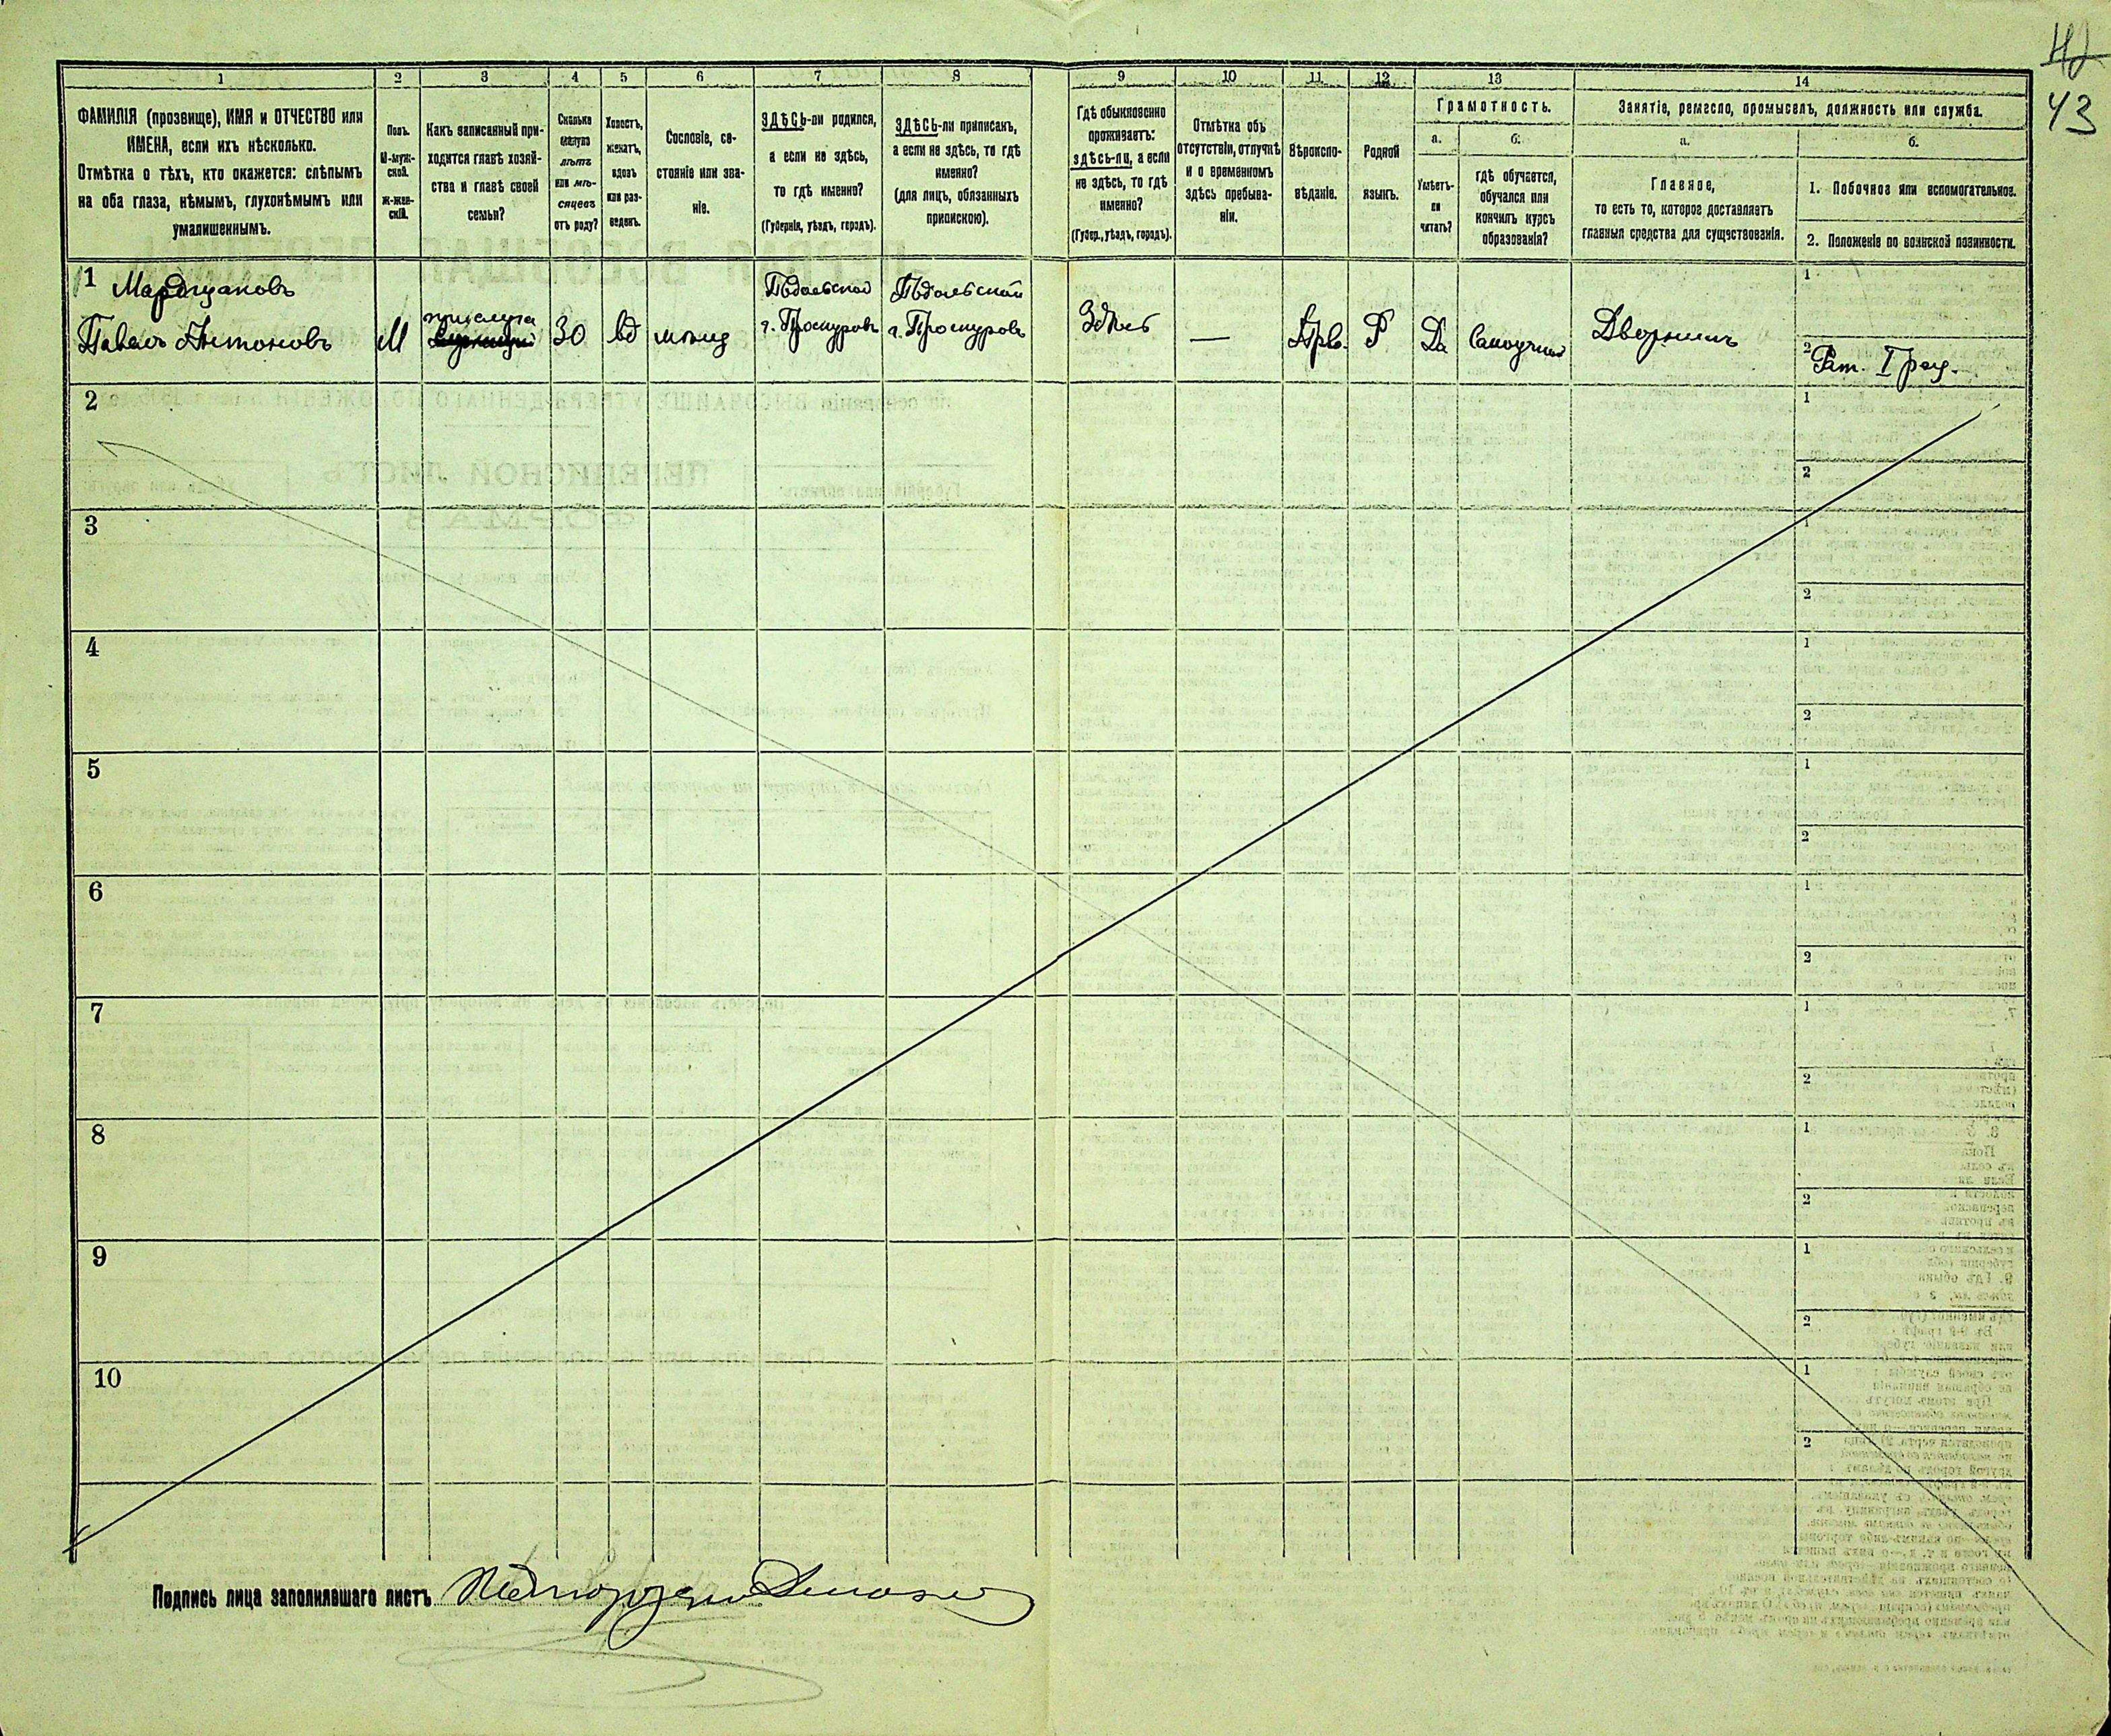 43
1 2 3 4 5 6 7 8 9 10 11 12 13 14
ФАМИЛІЯ (прозвище), ИМЯ и ОТЧЕСТВО или
ИМЕНА, если ихъ нѣсколько.
Отмѣтка о тѣхъ, кто окажется: слѣпымъ
на оба глаза, нѣмымъ, глухонѣмымъ или
умалишеннымъ.
Полъ.
М-муж-
ской.
ж-жен-
скій.
Какъ записанный при-
ходится главѣ хозяй-
ства и главѣ своей
семьи?
Сколько
минуло
лѣтъ
или мѣ-
сяцевъ
отъ роду?
Холостъ,
женатъ,
вдовъ
или раз-
веденъ.
Сословіе, со-
стояніе или зва-
ніе.
ЗДѢСЬ-ли родился,
а если не здѣсь,
то гдѣ именно?
(Губернія, уѣздъ, городъ).
ЗДѢСЬ-ли приписанъ,
а если не здѣсь, то гдѣ
именно?
(для лицъ, обязанныхъ
припискою).
Гдѣ обыкновенно
проживаетъ:
здѣсь-ли, а если
не здѣсь, то гдѣ
именно?
(Губер., уѣздъ, городъ).
Отмѣтка объ
отсутствіи, отлучкѣ
и о временномъ
здѣсь пребыва-
ніи.
Вѣроиспо-
вѣданіе.
Родной
языкъ.
Грамотность.
а.
Умѣетъ-
ли
читать?
б.
гдѣ обучается,
обучался или
кончилъ курсъ
образованія?
Занятіе, ремесло, промыселъ, должность или служба.
а.
Главное,
то есть то, которое доставляетъ
главныя средства для существованія.
б.
1. Побочное или вспомогательное.
2. Положеніе по воинской повинности.
1
Павелъ Антоновъ
М
прислуга
30
вд
мѣщ
Подольской
г. Проскуровъ
Подольской
г. Проскуровъ
Здѣсь
—
Прв.
Р
Да
Самоучка
Дворникъ
1
2 Рат. I раз.
2
1
2
3
1
2
4
1
2
5
1
2
6
1
2
7
1
2
8
1
2
9
1
2
10
1
2
Подпись лица заполнявшаго листъ